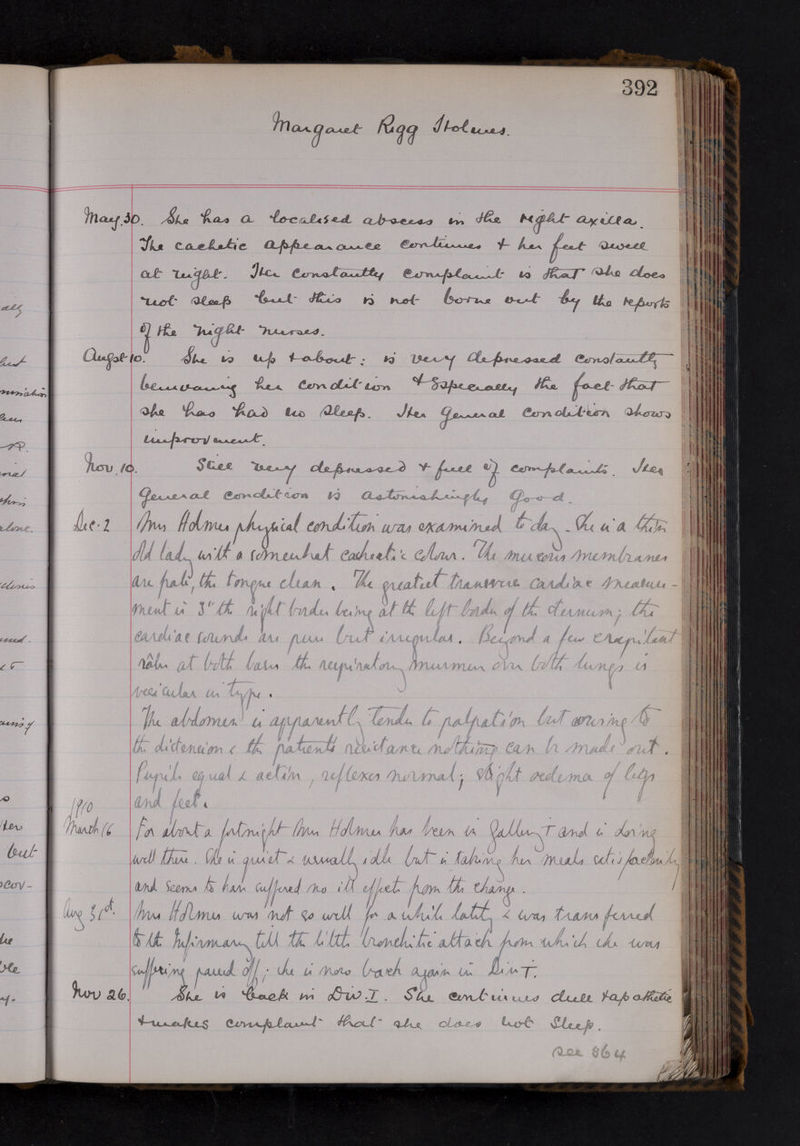 392
Margaret Rigg Holmes.
May. 30. She has a localised abscess in the right axilla.
The cachetic appearance continues & her feet swell
at night. Her constantly complaint is that she does
not sleep but this is not borne out by the reports
of the night nurses.
Augst 10. She is up & about: is very depressed constantly
bemoaning her condition & especially the fact that
she has had no sleep. Her general condition shows
improvement.
Nov. 10. Still very depressed & full of complaints. Her
general condition is astonishingly good.
Dec. 2 Mrs Holmes physical condition was examined to day. She is a thin
old lady with a somewhat cachectic colour. The mucous membranes
are pale, the tongue clean. The greatest transverse cardiac measure-
ment is 3" the right border being at the left border of the sternum; the
cardiac sounds are pure but irregular. Beyond a few crepitant
râles at both bases the respiratory murmur over both lungs is
vesicular in type.
The abdomen is apparently tender to palpation but owing to
the distension & the patients resistance nothing can be made out.
Pupils equal & active, reflexes normal; slight oedema of legs
and feet.
1910
March 16 For about a fortnight Mrs Holmes has been in Gallery T and is doing
well there. She is quiet & usually idle but is taking her meals satisfactorily
and seems to have suffered no ill effects from the change.
Aug 31st. Mrs Holmes was not so well for a while lately & was transferred
to the Infirmary till the little bronchitic attack from which she was
suffering passed off; she is now back again in
Nov 26. She is back in DW.I. She continues dull & apathetic
& makes complaint that she does not sleep.
see 864